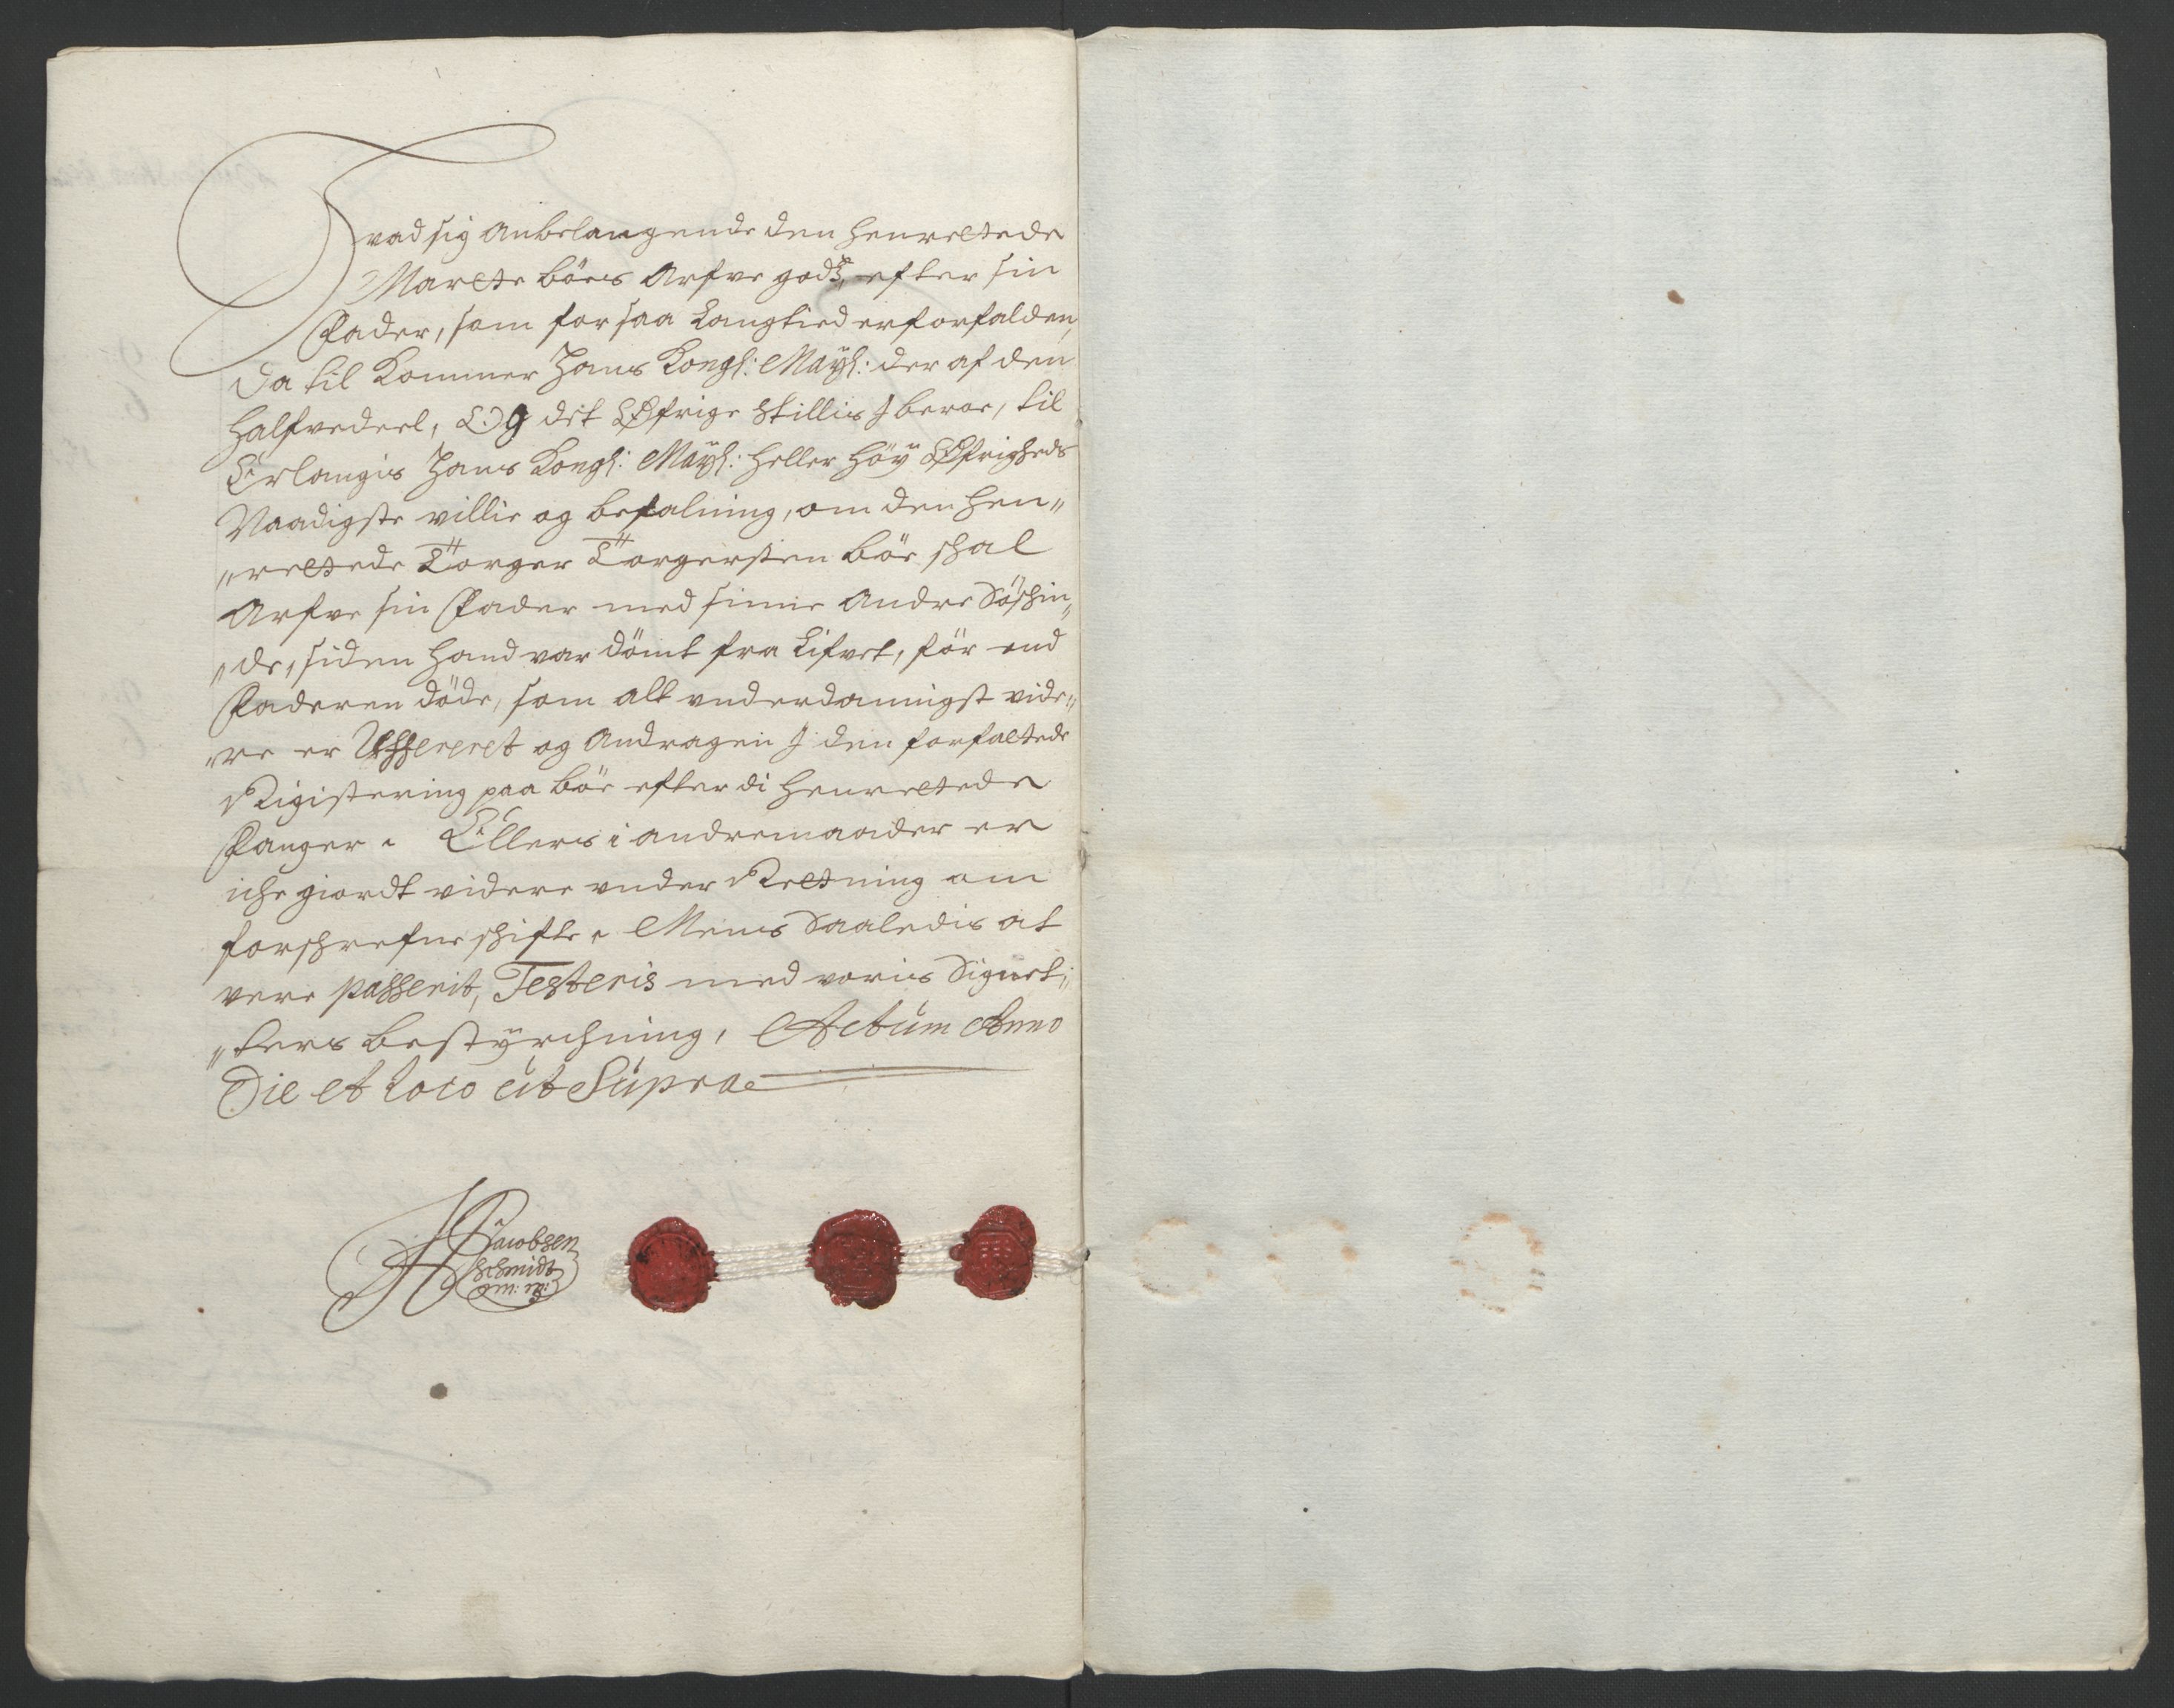 Hvad sig Anbelangende den henrettede
Marete böes Arfve godz, efter sin
Fader, som for saa Langtied er forfalden,
Da til kommer Hans Kongl: Maÿt: der af den
halfvedeel, Og det Öfrige stillis J beroe, til
Erlangis Hans Kongl: Maÿt: heller Höÿ Öfrigheds
Naadigste villie og befalning, om den hen„
„rettede Torger Torgersen böe schal
Arfve sin Fader med sinne Andre Söschin„
„de, siden hand var dömt fra Lifvet, för end
Faderen döde, som alt underdannigst vide„
„re er Ussereret og Andragen J den forfattede
Rigistering paa böe efter di henrettede
Fanger. Ellers i andre maader er
iche giordt videre under Retning om
forschrefne schifte. Mens Saaledis at
vere passerit, Testeris med voris Signet„
„ters bestÿrchning, Actum Anno
Die et Loco út Súpra
Jacobsen
Schmidt